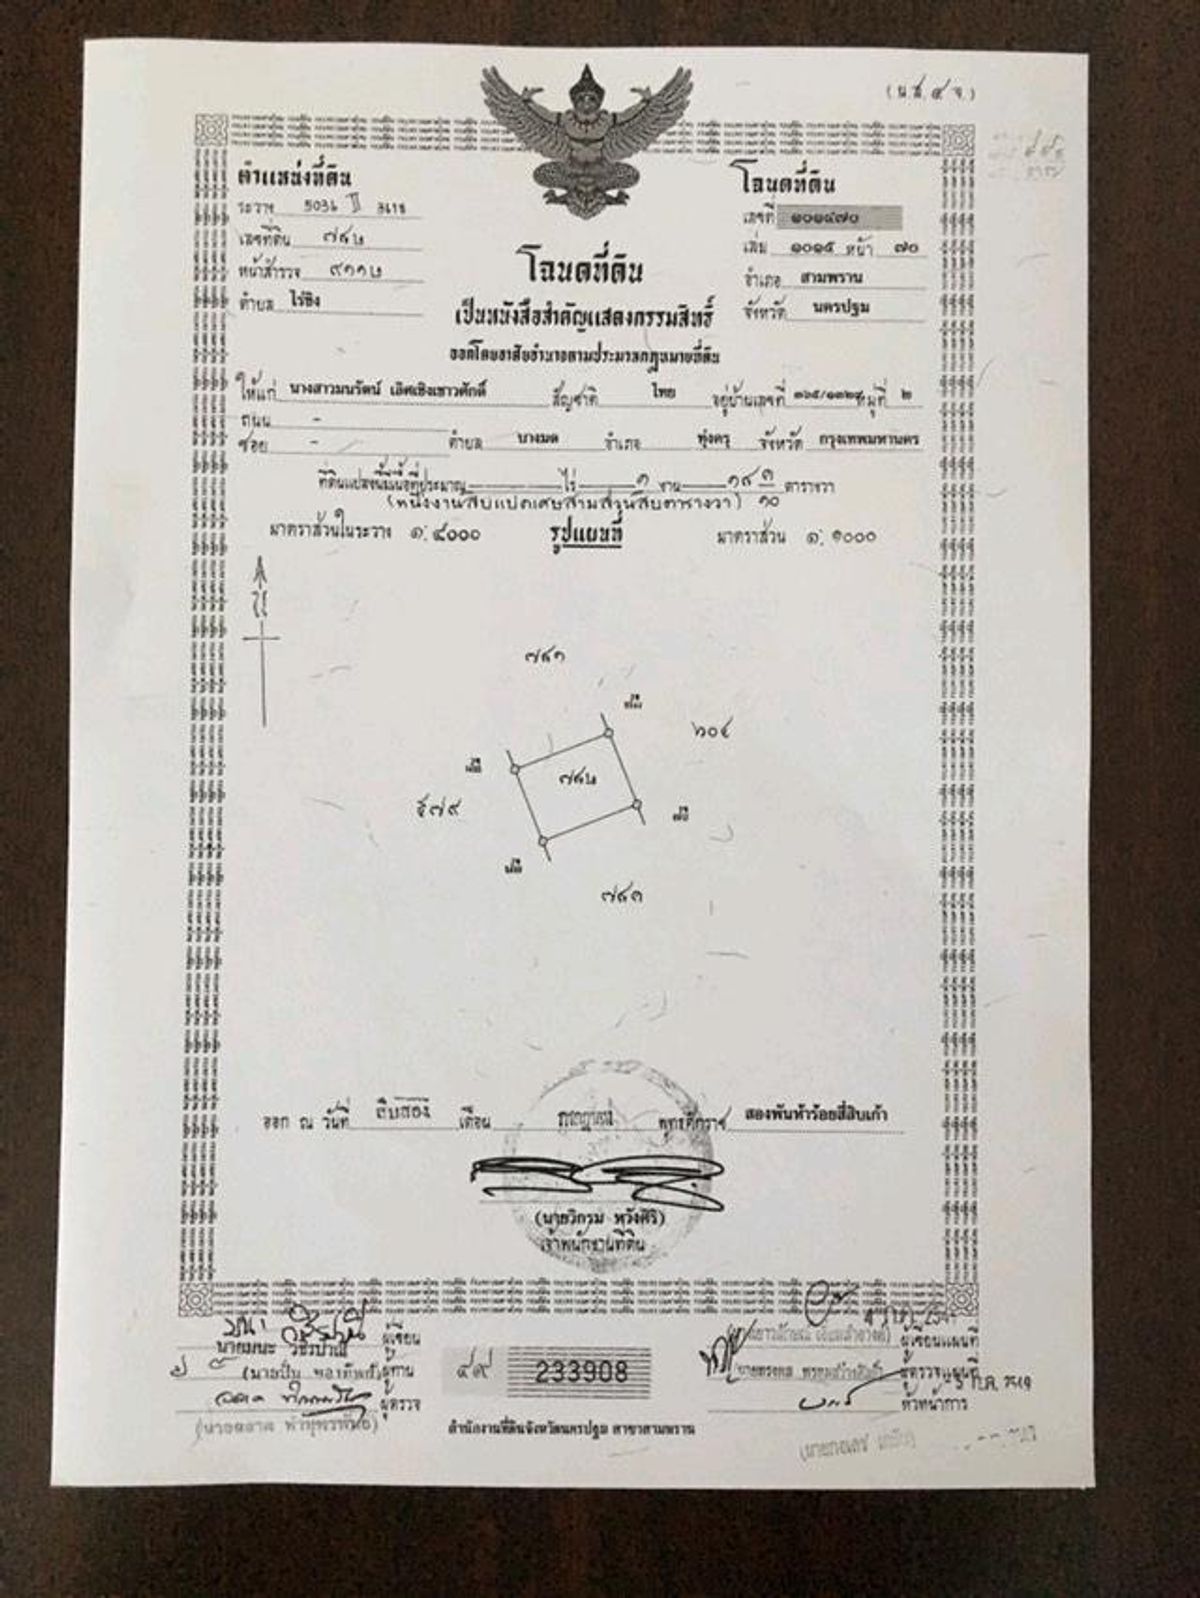 (น.ส.๔ จ.)
ตำแหน่งที่ดิน
ระวาง 5036 II 3618
เลขที่ดิน ๗๔๒
หน้าสำรวจ ๙๑๑๒
ตำบล ไร่ขิง
โฉนดที่ดิน
เลขที่ ๑๐๑๔๗๐
เล่ม ๑๐๑๕ หน้า ๗๐
อำเภอ สามพราน
จังหวัด นครปฐม
โฉนดที่ดิน
เป็นหนังสือสำคัญแสดงกรรมสิทธิ์
ออกโดยอาศัยอำนาจตามประมวลกฎหมายที่ดิน
ให้แก่ นางสาวมนรัตน์ เลิศเชิงเชาวศักดิ์ สัญชาติ ไทย อยู่บ้านเลขที่ ๓๖๕/๑๓๒๙ หมู่ที่ ๒
ถนน -
ซอย - ตำบล บางมด อำเภอ ทุ่งครุ จังหวัด กรุงเทพมหานคร
ที่ดินแปลงนี้มีเนื้อที่ประมาณ ไร่ ๑ งาน ๑๘ ๓/๑๐ ตารางวา
(หนึ่งงานสิบแปดเศษสามส่วนสิบตารางวา)
มาตราส่วนในระวาง ๑:๔๐๐๐ รูปแผนที่ มาตราส่วน ๑:๑๐๐๐
น
๗๔๑
๖๐๔
๗๔๒
๕๗๙
๗๔๓
ออก ณ วันที่ สิบสอง เดือน กรกฎาคม พุทธศักราช สองพันห้าร้อยสี่สิบเก้า
(นายวิกรม หวังศิริ)
เจ้าพนักงานที่ดิน
นายมนะ วชิรปาณี ผู้เขียน
ผู้ทาน
ผู้ตรวจ
๔๙ 233908
สำนักงานที่ดินจังหวัดนครปฐม สาขาสามพราน
ผู้เขียนแผนที่
ผู้ตรวจแผนที่
หัวหน้าการ